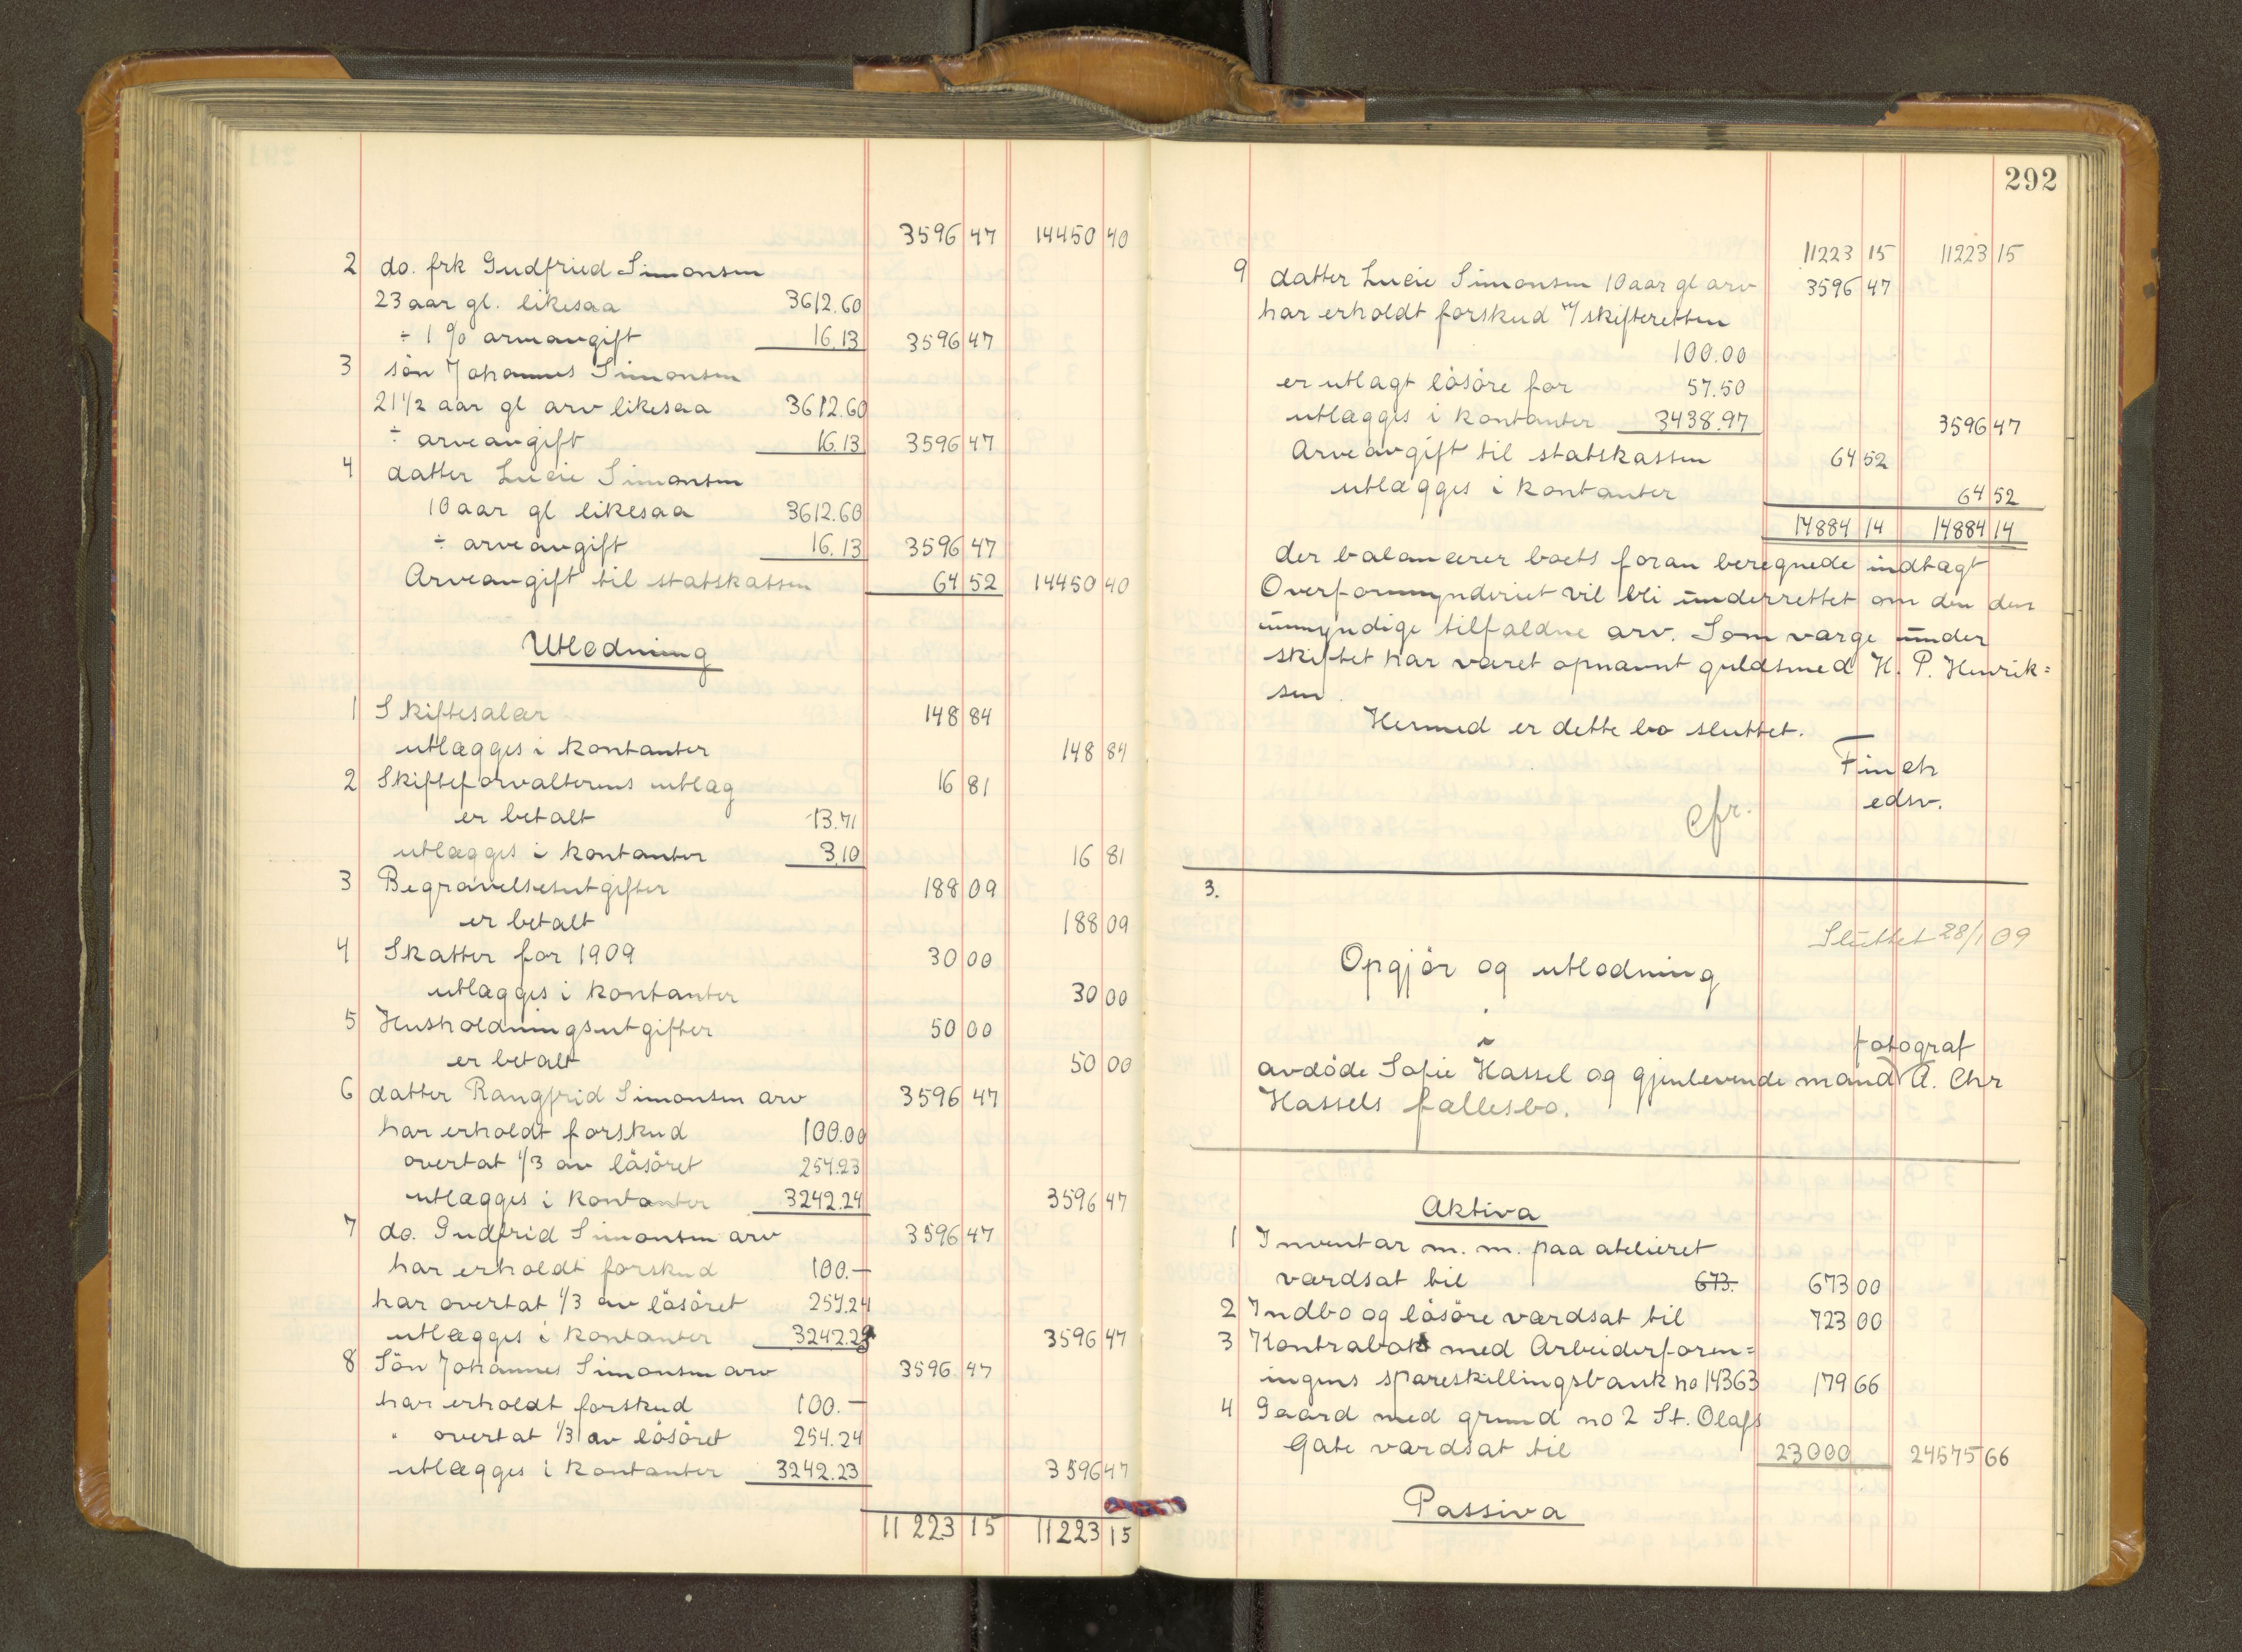 3596 47 14450 40
2 do. frk Gudfried Simonsen
23 aar gl. likesaa 3612.60
÷ 1 % arveavgift 16.13 3596 47
3 sön Johannes Simonsen
21 1/2 aar gl arv likesaa 3612.60
÷ arveavgift 16.13 3596 47
4 datter Lucie Simonsen
10 aar gl likesaa 3612.60
÷ arveavgift 16.13 3596 47
Arveavgift til statskassen 64 52 14450 40
Utlodning
1 Skiftesalær 148 84
utlægges i kontanter 148 84
2 Skifteforvalterens utlæg 16 81
er betalt 13.71
utlægges i kontanter 3.10 16 81
3 Begravelsesutgifter 188 09
er betalt 188 09
4 Skatter for 1909 30 00
utlægges i kontanter 30 00
5 Husholdningsutgifter 50 00
er betalt 50 00
6 datter Rangfrid Simonsen arv 3596 47
har erholdt forskud 100.00
overtat 1/3 av lösöret 254.23
utlægges i kontanter 3242.24 3596 47
7 do. Gudfrid Simonsen arv 3596 47
har erholdt forskud 100.—
har overtat 1/3 av lösöret 254.24
utlægges i kontanter 3242.23 3596 47
8 Sön Johannes Simonsen arv 3596 47
har erholdt forskud 100.—
" overtat 1/3 av lösöret 254.24
utlægges i kontanter 3242.23 3596 47
11 223 15 11 223 15
292
11223 15 11223 15
9 datter Lucie Simonsen 10 aar gl arv 3596 47
har erholdt forskud v/ skifteretten
100.00
er utlagt lösöre for 57.50
utlægges i kontanter 3438.97 3596 47
Arveavgift til statskassen 64 52
utlægges i kontanter 64 52
14884 14 14884 14
der balancerer boets foran beregnede indtægt
Overformynderiet vil bli underrettet om den den
umyndige tilfaldne arv. Som værge under
skiftet har været opnævnt guldsmed H. P. Henrik=
sen.
Hermed er dette bo sluttet.
Finch
edsv.
cfr.
3.
Sluttet 28/1 09
Opgjör og utlodning
i
fotograf
avdöde Sofie Hassel og gjenlevende mand A. Chr
Hassels fællesbo.
Aktiva
1 Inventar m. m. paa atelieret
værdsat til 673. 673 00
2 Indbo og lösöre værdsat til 723 00
3 Kontrabok med Arbeiderforen=
ingens spareskillingsbank no 14363 179 66
4 Gaard med grund no 2 St. Olafs
Gate værdsat til 23000 24575 66
Passiva